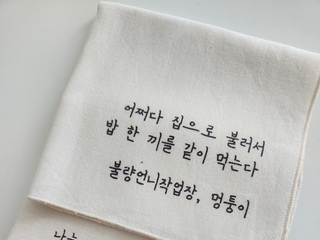 어쩌다 집으로 불러서
밥 한 끼를 같이 먹는다
불량언니작업장, 멍퉁이
나는